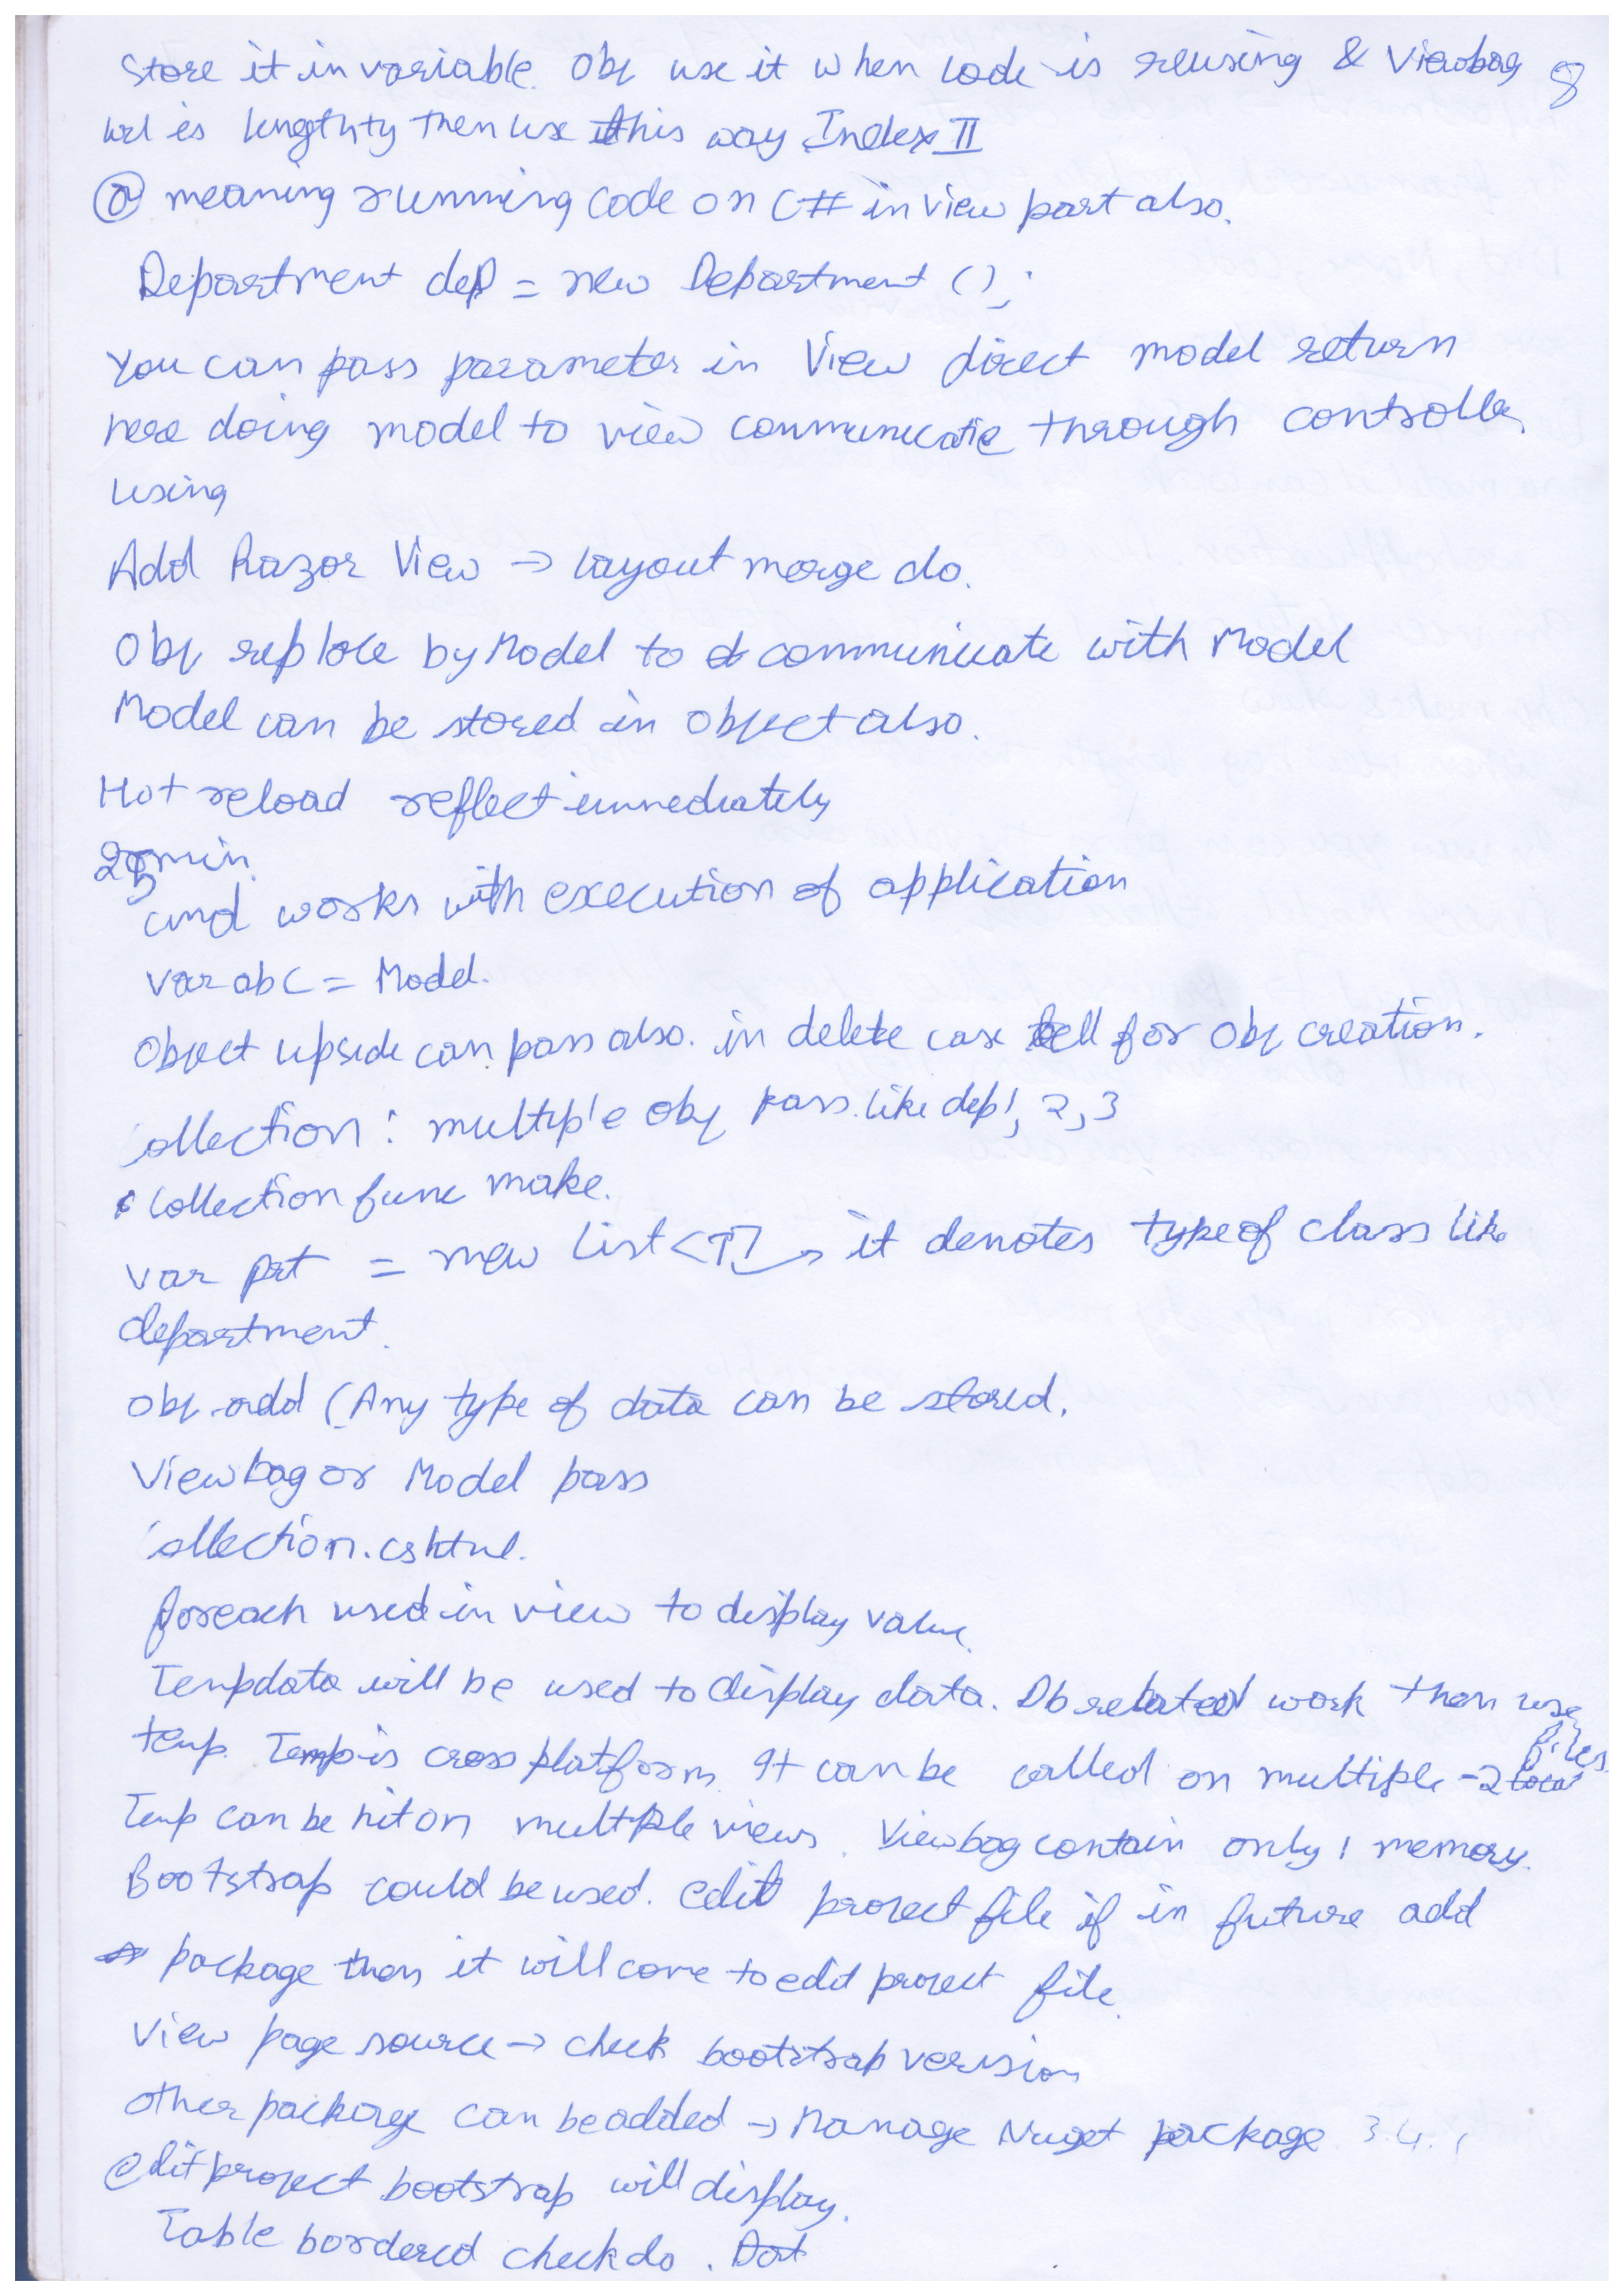 Store it in variable. Obj use it when code is reusing & Viewbag 8
url is lengthty then use this way Index II
@ meaning running code on C# in view part also.
Department dep = new Department ();
You can pass parameter in View direct model return
here doing model to view communicatie through controller
using
Add Razor View → layout merge do.
Obj replace by Model to communicate with Model
Model can be stored in object also.
Hot reload reflect immediately
25 min.
cmd works with execution of application
var abc = Model.
Object upside can pass also. in delete case tell for obj creation.
collection : multiple obj pass. like dep1, 2, 3
collection func make.
var prt = new List<T> → it denotes type of class like
department.
obj.add (Any type of data can be stored.
Viewbag or Model pass
collection.cshtml.
foreach used in view to display value.
Tempdata will be used to display data. Db related work then use
temp. Temp is cross platform. It can be called on multiple - 2 files
Temp can be hit on multiple views. Viewbag contain only 1 memory.
Bootstrap could be used. edit project file if in future add
package then it will come to edit project file.
View page source → check bootstrap verision
other package can be added → Manage Nuget package 3.4.1
edit project bootstrap will display.
Table bordered check do.